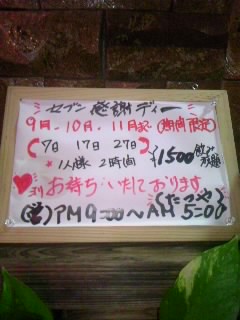 セブン感謝ディー
9月、10月、11月迄(期間限定)
7日 17日 27日
*1人様 2時間 ¥1500 飲み放題
お待ちいたしております
PM9=00〜AM5=00